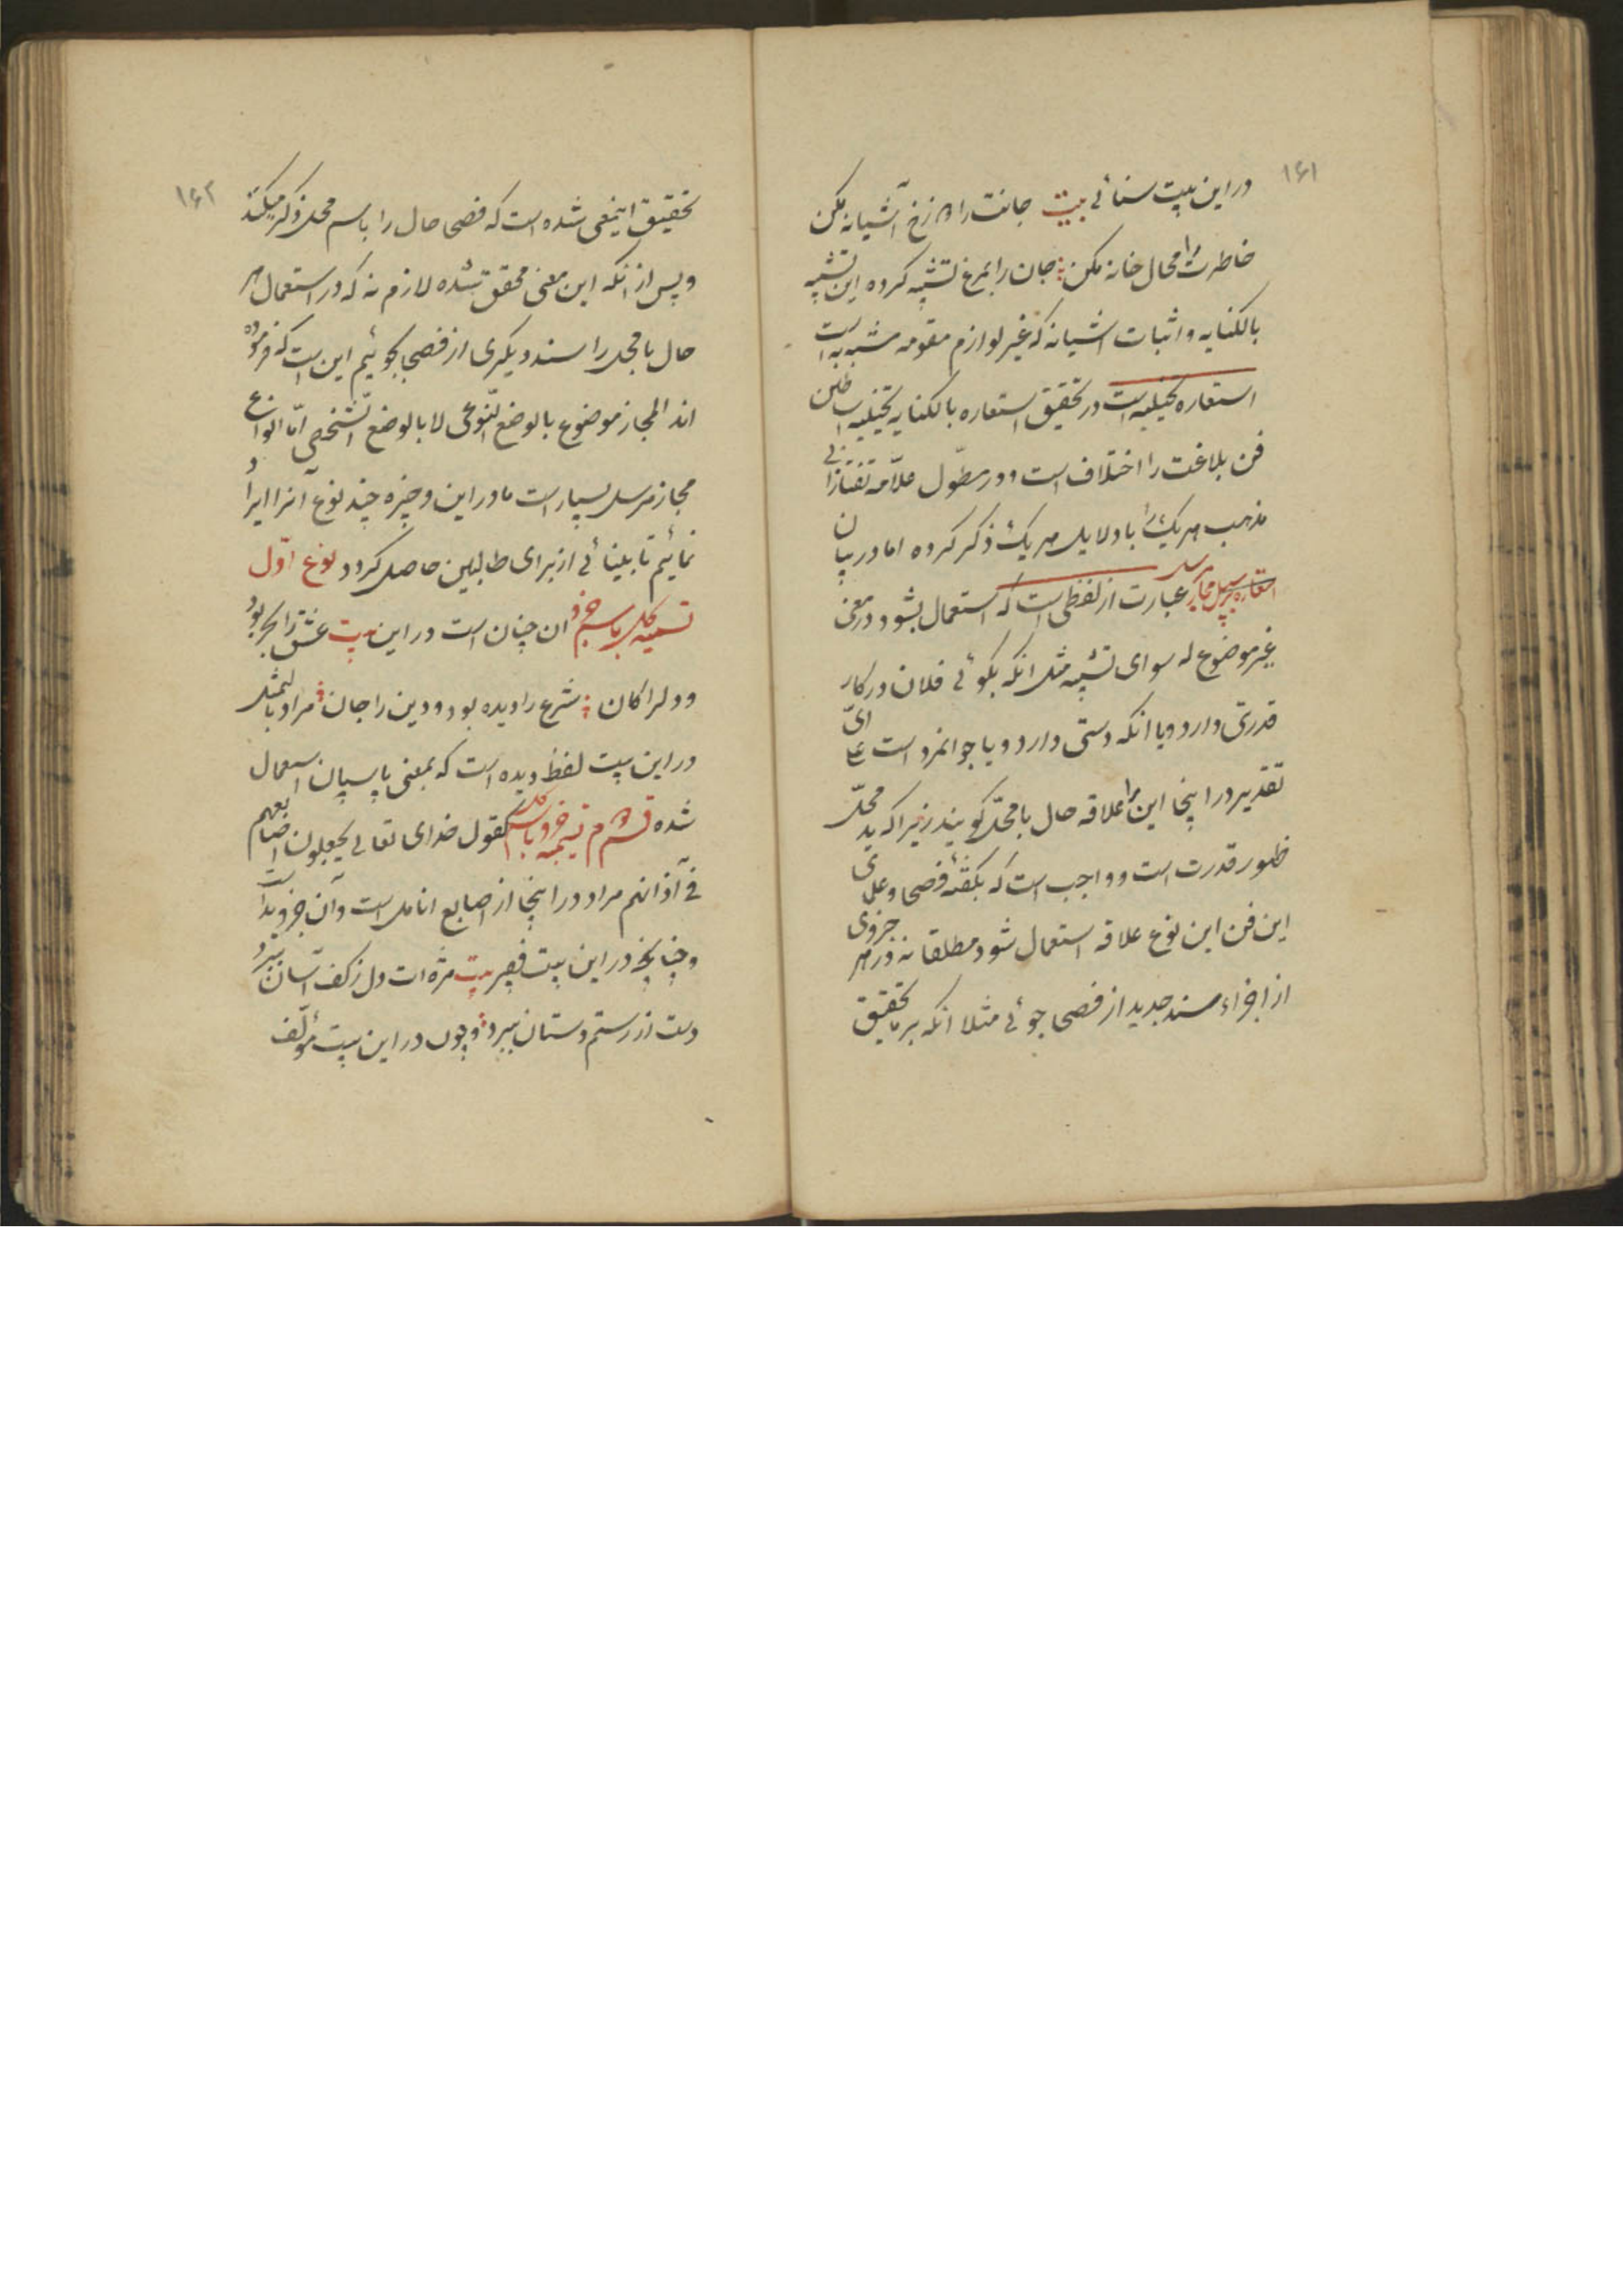 ۱۶۱
در این بیت سنائی بیت جانت را دوزخ آشیانه مکن
خاطرت را محال خانه مکن جان را بمرغ تشبیه کرده این تشبیه
بالکنایه و اثبات اشیانه که غیر لوازم مقومه مشبه به است
استعاره تخیلیه است در تحقیق استعاره بالکنایه تخیلیه
فن بلاغت را اختلاف است و در مطوّل علاّمه تفتازانی
مذهب هر یک را با دلایل هر یک ذکر کرده اما در بیان
استعاره بر سبیل مجاز مرسل عبارت از لفظی است که استعمال بشود در معنی
غیر موضوع له سوای تشبیه مثل انکه بکوئی فلان در کار
قدرتی دارد و یا انکه دستی دارد و یا جوانمرد است
تقدیر در اینجا این را علاقه حال با محلّ کویند زیرا که ید محلّ
ظهور قدرت است و واجب است که بکفتهٔ فصحی و علمای
این فن این نوع علاقه استعمال شود مطلقا نه در هر جزوی
از اجزاء سند جدید از فصحی جوئی مثلا انکه بر ما تحقیق
۱۶۲
تحقیق اینمعنی شده است که فصحی حال را باسم محل ذکر میکنند
و پس از انکه این معنی محقق شده لازم نه که در استعمال هر
حال با محل را سند دیکری از فصحی بجوئیم این است که فرموده
اند المجاز موضوع بالوضع النّوعی لا بالوضع الشّخصی امّا انواع
مجاز مرسل بسیار است ما در این وجیزه چند نوع آنرا ایراد
نمائیم تا بینائی از برای طالبین حاصل کردد نوع اوّل
تسمیه کل باسم جزو ان چنان است در این بیت عشق را بحر بود
و دل را کان شرع را دیده بود و دین را جان مراد بالتمثل
در این بیت لفظ دیده است که بمعنی پاسپان استعمال
شده قسم دوم تسمیه جزو باسم کل کقول خدای تعالی یجعلون اصابعهم
فی آذانهم مراد در اینجا از اصابع انامل است و آن جزو ید است
و چنانچه در این بیت فقیر بیت مژه ات دل ز کف آسان ببرد
دست از رستم دستان ببرد و چون در این بیت مؤلّف